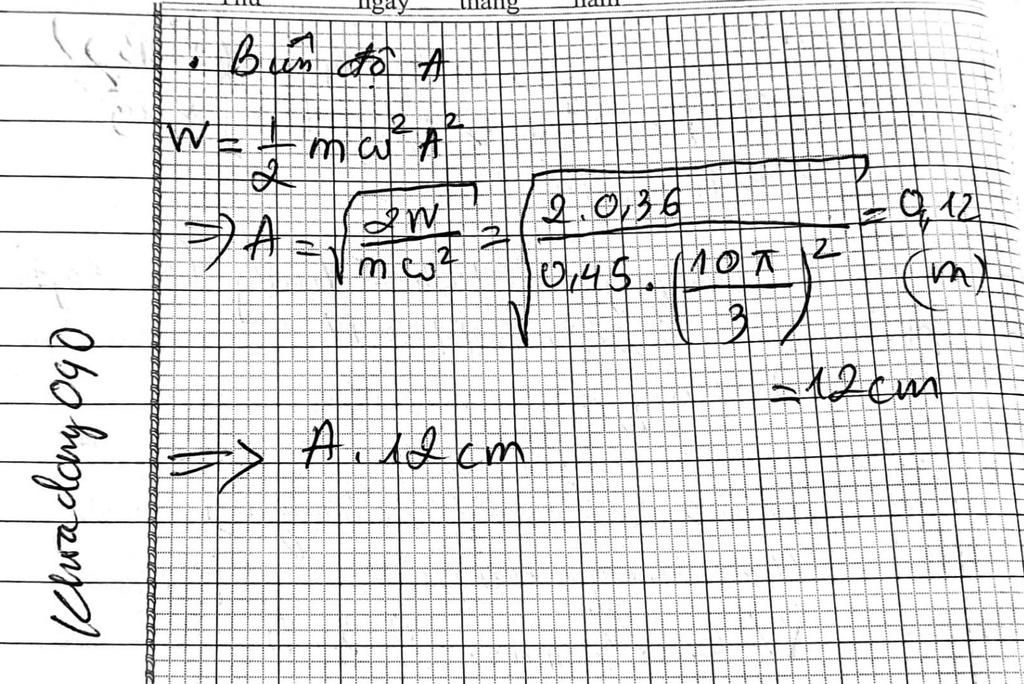 Thứ ngày tháng năm
. Biên độ A
W = \frac{1}{2} m ω² A²
=> A = \sqrt{\frac{2W}{mω²}} = \sqrt{\frac{2.0,36}{0,45.(\frac{10π}{3})²}} = 0,12 (m)
= 12 cm
=> A. 12 cm